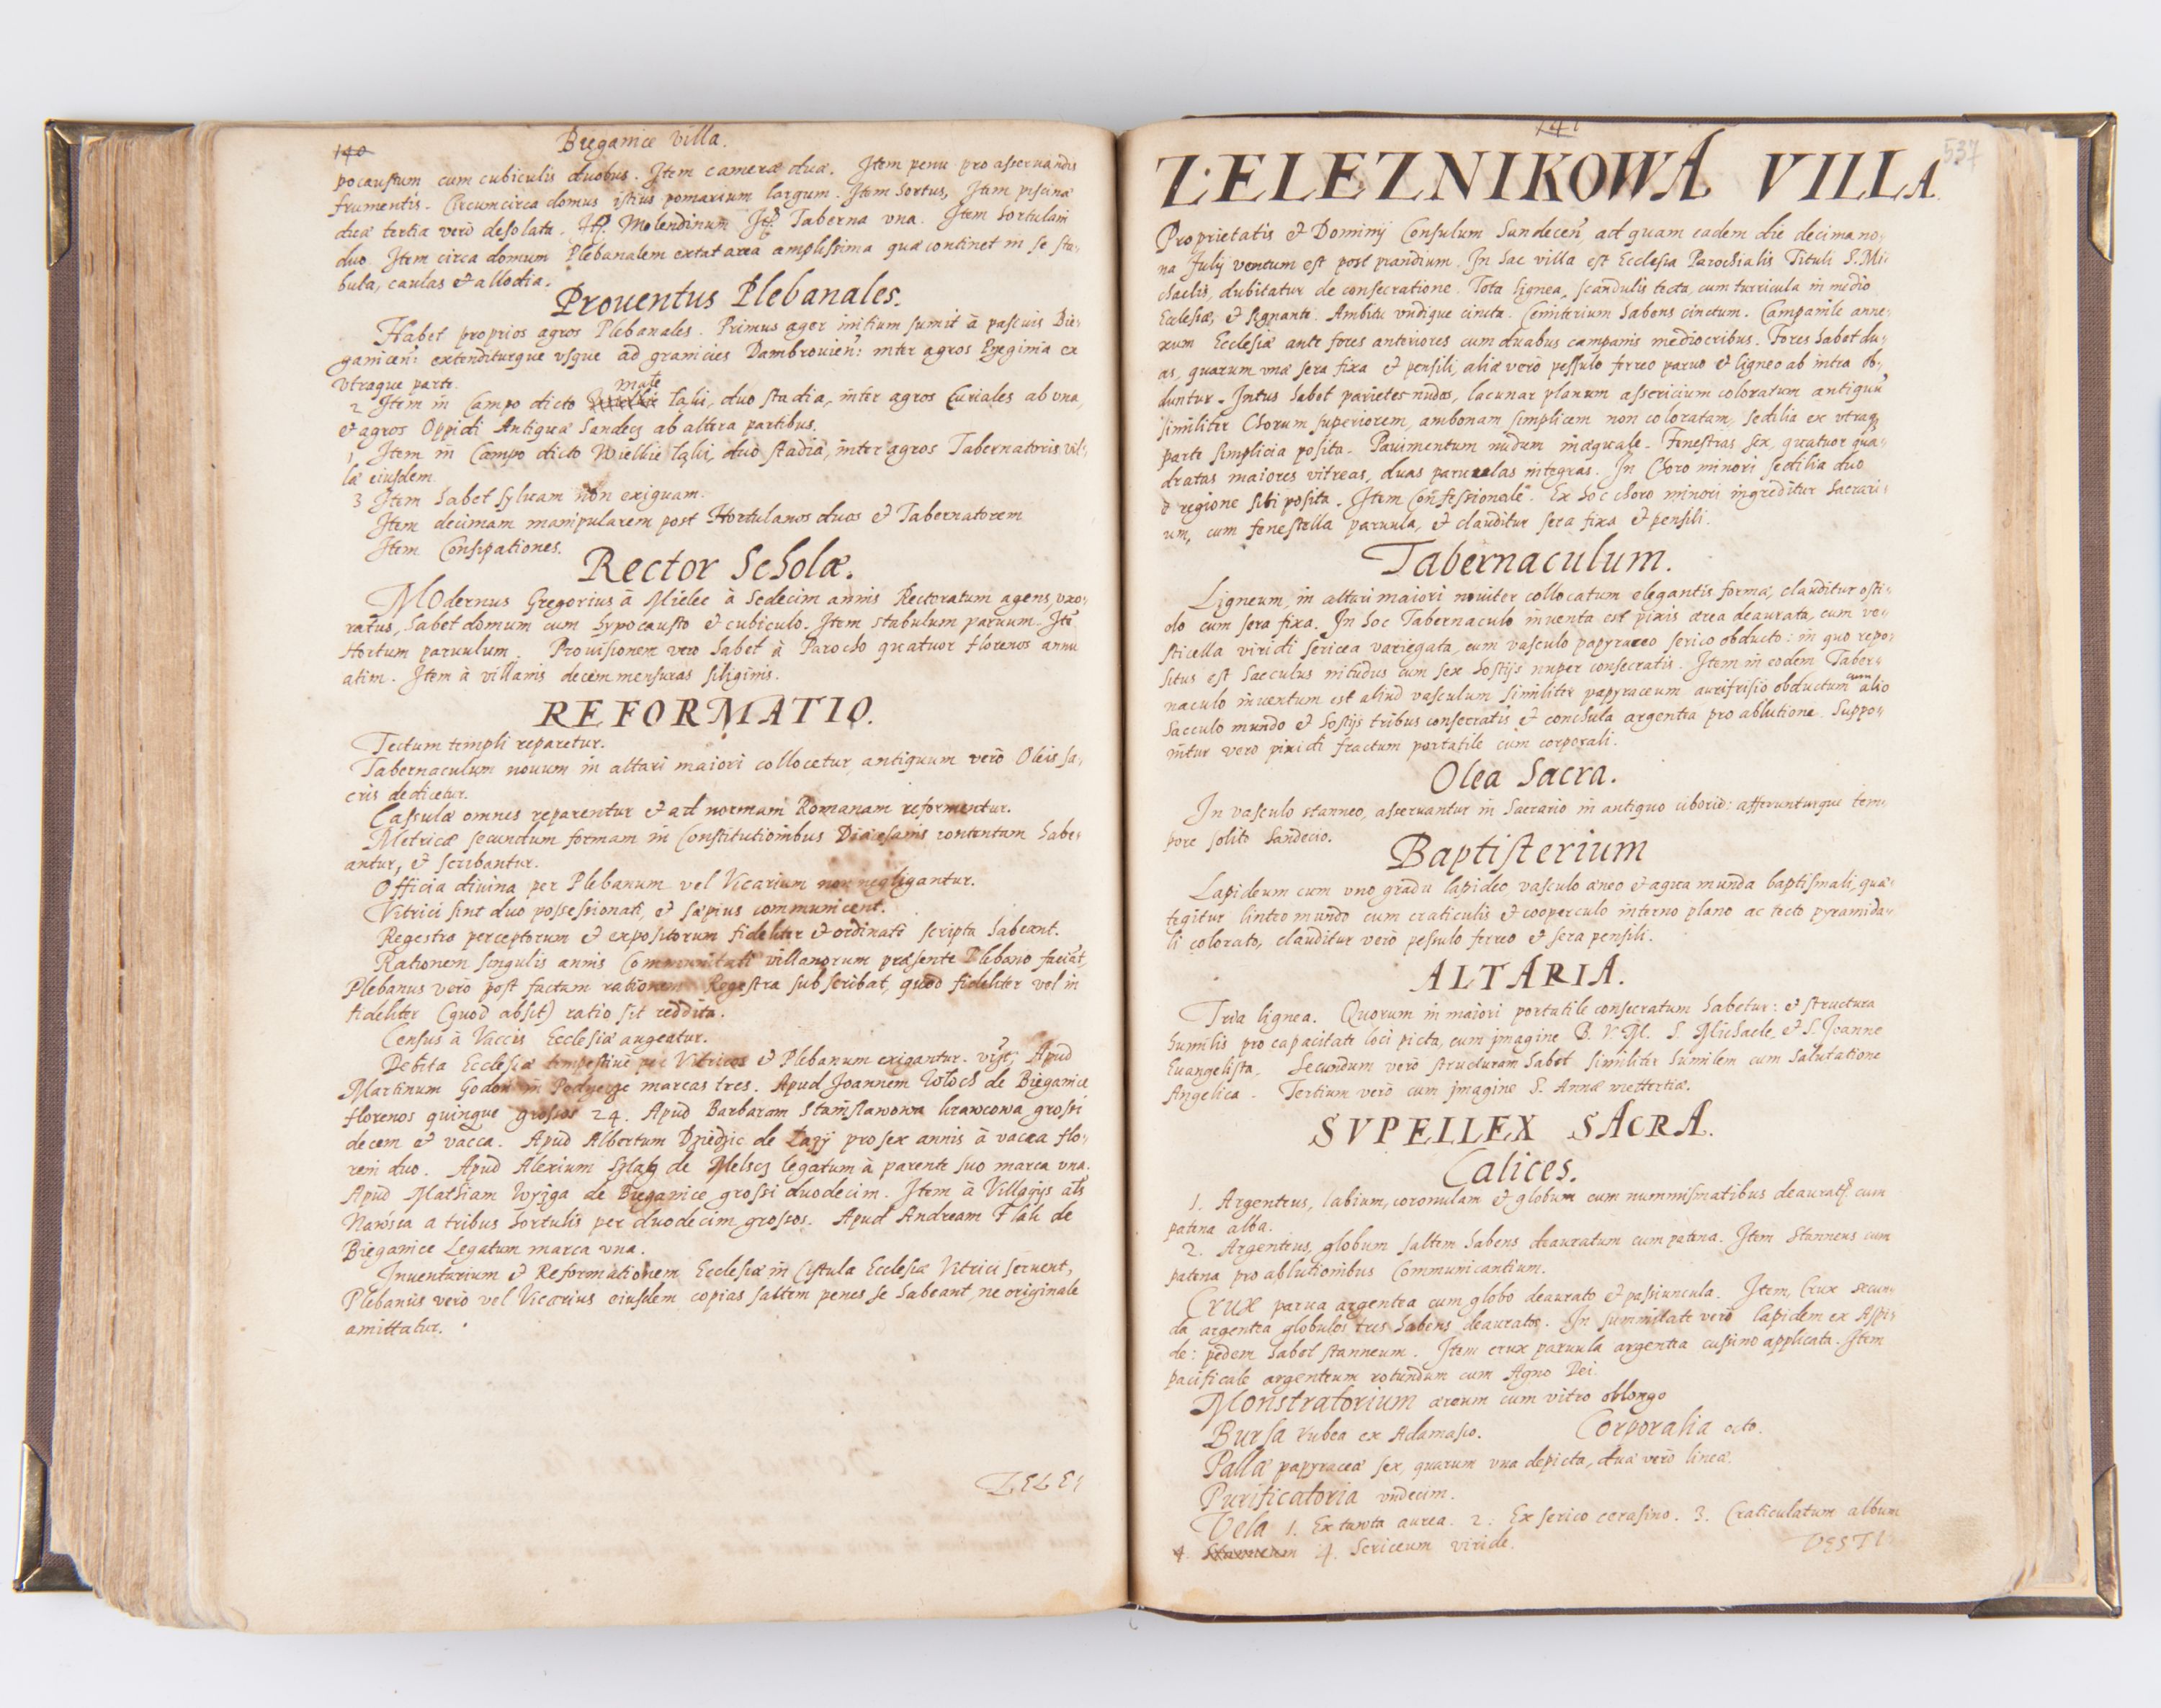 140
Bieganice villa.
pocaustum cum cubiculis duobus. Item cameræ duæ. Item penu pro asseruandis
frumentis. Circumcirca domus istius pomarium largum. Item hortus, Item piscinæ
duæ tertia verò desolata. Itē. Molendinum Itē. Taberna vna. Item hortulani
duo. Item circa domum Plebanalem extat area amplissima quæ continet in se sta-
bula, caulas et allodia.
Prouentus Plebanales.
Habet proprios agros Plebanales. Primus ager initium sumit à pascuis Bie-
ganiceñ: extenditurque vsque ad granicies Dambrouieñ: inter agros
vtraque parte.
małe
2 Item in Campo dicto łąki, duo stadia, inter agros Curiales ab vna,
et agros Oppidi Antiquæ Sandecz ab altera partibus.
1 Item in Campo dicto Wielkie łąki, duo stadia, inter agros Tabernatoris vil-
læ eiusdem.
3 Item habet syluam non exiguam.
Item decimam manipularem post Hortulanos duos et Tabernatorem
Item Consipationes.
Rector Scholæ.
Modernus Gregorius à Mielec à sedecim annis Rectoratum agens, vxo-
ratus, habet domum cum hypocausto et cubiculo. Item stabulum paruum. Itē
Hortum paruulum. Prouisionem vero habet à Parocho quatuor florenos annu
atim. Item à villanis decem mensuras siliginis.
REFORMATIO.
Tectum templi reparetur.
Tabernaculum nouum in altari maiori collocetur, antiquum verò Oleis sa-
cris dedicetur.
Casulæ omnes reparentur et ad normam Romanam reformentur.
Metricæ secundum formam in Constitutionibus Diæcesanis contentam habe-
antur, et scribantur.
Officia diuina per Plebanum vel Vicarium non negligantur.
Vitrici sint duo possessionati, et sæpius communicent.
Regestra perceptorum et expositorum fideliter et ordinatè scripta habeant.
Rationem singulis annis Communitati villanorum præsente Plebano faciāt,
Plebanus verò post factam rationem Regestra subscribat, quod fideliter vel in
fideliter (quod absit) ratio sit reddita.
Census à Vaccis Ecclesiæ augeatur.
Debita Ecclesiæ tempestiuè per Vitricos et Plebanum exigantur. Apud
Martinum Godoń in Podgeyze marcas tres. Apud Joannem Wołoch de Bieganice
florenos quinque grossos 24. Apud Barbaram Stanisławowa krawcowa grossi
decem et vacca. Apud Albertum Dziedzic de Łazÿ pro sex annis à vacca flo-
reni duo. Apud Alexium de legatum à parente suo marca vna.
Apud Mathiam Wyzga de Bieganice grossi duodecim. Item à Villagijs als
Nawsia a tribus hortulis per duodecim grossos. Apud Andream Flak de
Bieganice Legatum marca vna.
Inuentarium et Reformationem Ecclesiæ in Cistula Ecclesiæ Vitrici seruent,
Plebanus verò vel Vicarius eiusdem copias saltem penes se habeant, ne originale
amittatur.
ZELEZ
141
537
ZELEZNIKOWA VILLA
Proprietatis et Dominij Consulum Sandeceñ, ad quam eadem die decimano-
na Julij ventum est post prandium. In hac villa est Ecclesia Parochialis Tituli S. Mi-
chaelis, dubitatur de consecratione. Tota lignea, scandulis tecta, cum turricula in medio
Ecclesiæ, et signante. Ambitu vndique cincta. Cemiterium habens cinctum. Campanile anne-
xum Ecclesiæ ante fores anteriores cum duabus campanis mediocribus. Fores habet du-
as, quarum vna sera fixa et pensili, aliæ verò pessulo ferreo paruo et ligneo ab intra ob-
duntur. Intus habet parietes nudos, lacunar planum assericium coloratum antiquū
similiter Chorum superiorem, ambonam simplicem non coloratam, sedilia ex vtraq
parte simplicia posita. Pauimentum nudum inæquale. Fenestras sex, quatuor qua-
dratas maiores vitreas, duas paruulas integras. In Choro minori sedilia duo
è regione sibi posita. Item Confessionale. Ex hoc choro minori ingreditur Sacrari-
um, cum fenestella paruula, et clauditur sera fixa et pensili.
Tabernaculum.
Ligneum, in altari maiori nouiter collocatum elegantis formæ, clauditur osti-
olo cum sera fixa. In hoc Tabernaculo inuenta est pixis ærea deaurata, cum ve-
sticella viridi sericea variegata, cum vasculo papyraceo serico obducto: in quo repo-
situs est sacculus nitudus cum sex hostijs nuper consecratis. Item in eodem Taber-
naculo inuentum est aliud vasculum similiter papyraceum aurifrisio obductum cum alio
sacculo mundo et hostijs tribus consecratis et conchula argentea pro ablutione. Suppo-
nitur vero pixidi fractum portatile cum corporali.
Olea Sacra.
In vasculo stanneo, asseruantur in Sacrario in antiquo ciborio: afferunturque tem-
pore solito Sandecio.
Baptisterium
Lapideum cum vno gradu lapideo vasculo æneo et aqua munda baptismali, quæ
tegitur linteo mundo cum craticulis et cooperculo interno plano ac tecto pyramida-
li colorato, clauditur verò pessulo ferreo et sera pensili.
ALTARIA.
Tria lignea. Quorum in maiori portatile consecratum habetur: et structura
humilis pro capacitate loci picta, cum imagine B. V. M. S. Michaele, et S. Joanne
Euangelista. Secundum verò structuram habet similiter humilem cum Salutatione
Angelica. Tertium verò cum imagine S. Annæ mettertiæ.
SVPELLEX SACRA.
Calices.
1. Argenteus, labium, coronulam et globum cum nummismatibus deauratū cum
patena alba.
2. Argenteus, globum saltem habens deauratum cum patena. Item Stanneus cum
patena pro ablutionibus Communicantium.
Crux parua argentea cum globo deaurato et passiuncula. Item, Crux secun-
da argentea globulos tres habens deauratos. In summitate verò lapidem ex Aspi-
de: pedem habet stanneum. Item crux paruula argentea cussino applicata. Item
pacificale argenteum rotundum cum Agno Dei.
Monstratorium æreum cum vitro oblongo
Bursa rubea ex Adamasco. Corporalia octo.
Pallæ papyraceæ sex, quarum vna depicta, duæ verò lineæ.
Purificatoria vndecim.
Vela 1. Ex tawta aurea. 2. Ex serico cerasino. 3. Craticulatum album
4. 4. Sericeum viride.
VESTI